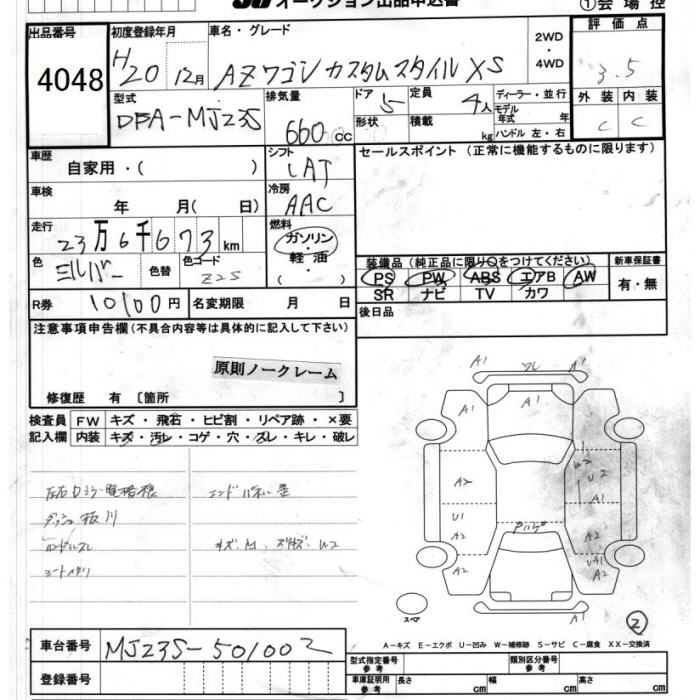 オークション出品申込書
①会場控
出品番号
4048
初度登録年月
H20 12月
車名・グレード
AZワゴン カスタムスタイル XS
2WD
・
4WD
評価点
3.5
外装 内装
C C
型式
DBA-MJ23S
排気量
660cc
ドア 5
形状
定員 4人
積載 kg
ディーラー・並行
モデル年式 年
ハンドル 左・右
車歴
自家用・( )
シフト
LAT
セールスポイント (正常に機能するものに限ります)
車検
年 月( 日)
冷房
AAC
走行
23万6千673km
燃料
ガソリン
・
軽油
・
( )
色
シルバー
色替
色コード
Z2S
装備品(純正品に限り○をつけてください)
新車保証書
PS PW ABS エアB AW
SR ナビ TV カワ
有・無
R券 10100円
名変期限 月 日
後日品
注意事項申告欄(不具合内容等は具体的に記入して下さい)
原則ノークレーム
修復歴 有〔箇所 〕
検査員
記入欄
FW キズ・飛石・ヒビ割・リペア跡・×要
内装 キズ・汚レ・コゲ・穴・ズレ・キレ・破レ
ハンドルスレ
キズ、M、W2
A1 A1
A1
A1 A1
W2
U2
A2 A1
U1 A2
A2 A2
A1
A1 A1
スペア
②
A-キズ E-エクボ U-凹み W-補修跡 S-サビ C-腐食 XX-交換済
車台番号
MJ23S-501002
登録番号
型式指定番号
参考
類別区分番号
参考
車庫証明用
参考
長さ cm
幅 cm
高さ cm